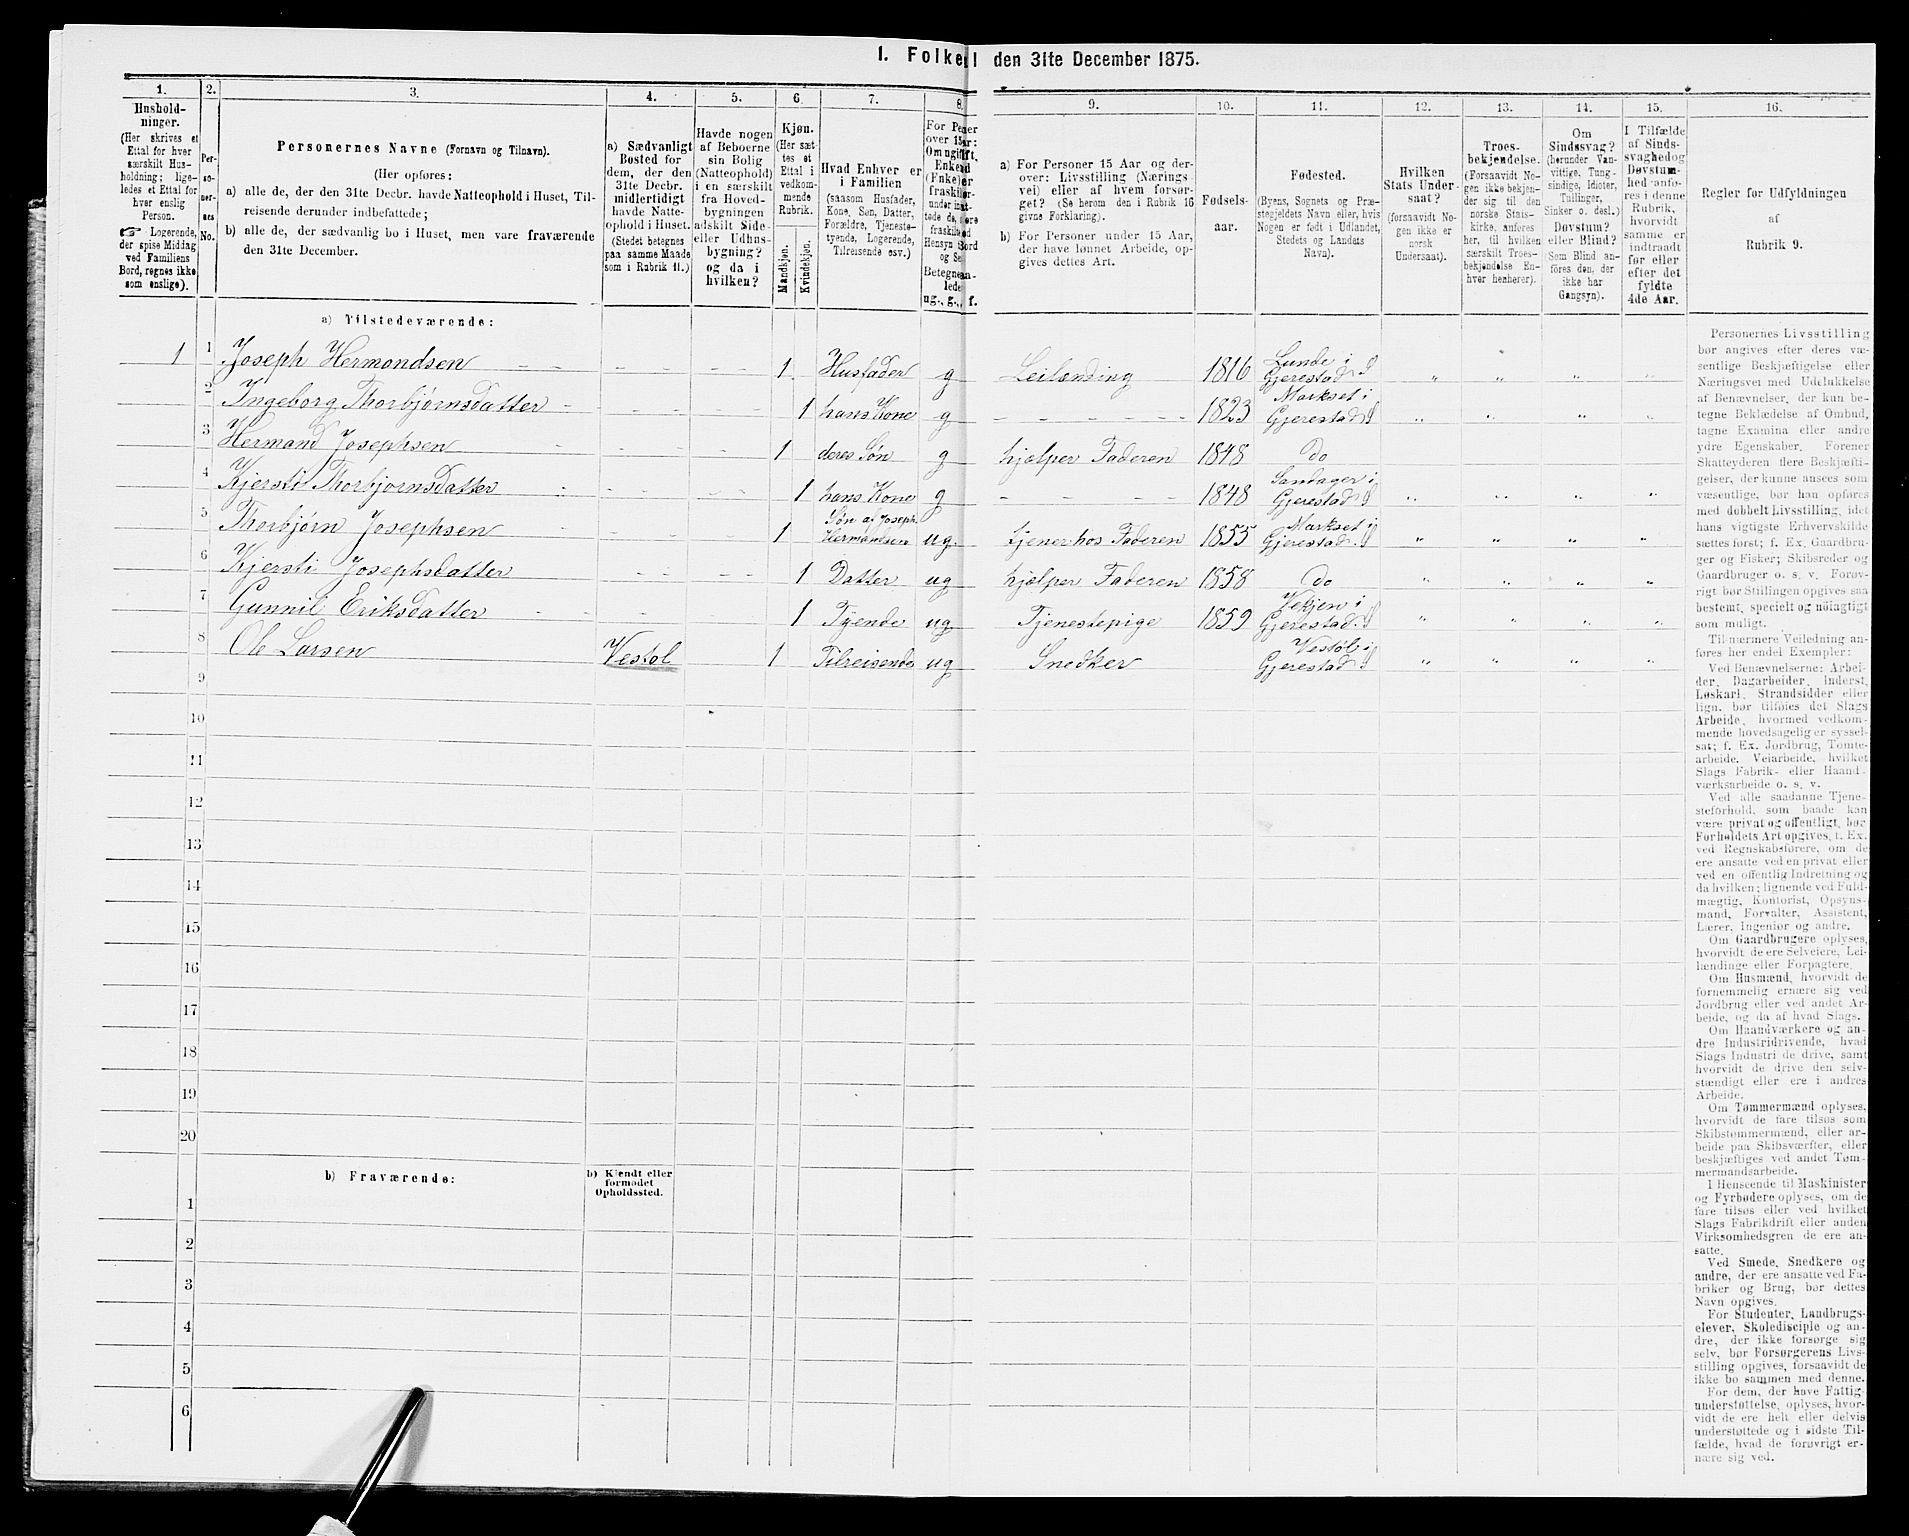 1. Folke den 31te December 1875.
1. 2. 3. 4. 5. 6. 7. 8. 9. 10. 11. 12. 13. 14. 15. 16.
Hushold-
ninger.
(Her skrives et
Ettal for hver
særskilt Hus-
holdning; lige-
ledes et Ettal for
hver enslig
Person.
Logerende,
der spise Middag
ved Familiens
Bord, regnes ikke
som enslige).
Per-
so-
ner-
nes
No.
Personernes Navne (Fornavn og Tilnavn).
(Her opføres:
a) alle de, der den 31te Decbr. havde Natteophold i Huset, Til-
reisende derunder indbefattede;
b) alle de, der sædvanlig bo i Huset, men vare fraværende
den 31te December.
a) Sædvanligt
Bosted for
dem, der den
31te Decbr.
midlertidigt
havde Natte-
ophold i Huset.
(Stedet betegnes
paa samme Maade
som i Rubrik 11.)
Havde nogen
af Beboerne
sin Bolig
(Natteophold)
i en særskilt
fra Hoved-
bygningen
adskilt Side-
eller Udhus-
bygning?
og da i
hvilken?
Kjøn.
(Her sæt-
tes et
Ettal i
vedkom-
mende
Rubrik.
Mandkjøn.
Kvindekjøn.
Hvad Enhver er
i Familien
(saasom Husfader,
Kone, Søn, Datter,
Forældre, Tjeneste-
tyende, Logerende,
Tilreisende osv.).
ug., g., f.
a) For Personer 15 Aar og der-
over: Livsstilling (Nærings-
vei) eller af hvem forsør-
get? (Se herom den i Rubrik 16
givne Forklaring).
b) For Personer under 15 Aar,
der have lønnet Arbeide, op-
gives dettes Art.
Fødsels-
aar.
Fødested.
(Byens, Sognets og Præ-
stegjeldets Navn eller, hvis
Nogen er født i Udlandet,
Stedets og Landets
Navn).
Hvilken
Stats Under-
saat?
(forsaavidt No-
gen ikke er
norsk
Undersaat).
Troes-
bekjendelse.
(Forsaavidt No-
gen ikke bekjen-
der sig til den
norske Stats-
kirke, anføres
her, til hvilken
særskilt Troes-
bekjendelse En-
hver henhører).
Om
Sindssvag?
(herunder Van-
vittige, Tung-
sindige, Idioter,
Tullinger,
Sinker o. desl.)
Døvstum?
eller Blind?
(Som Blind an-
føres den, der
ikke har
Gangsyn).
I Tilfælde
af Sinds-
svaghedog
Døvstum-
hed anfø-
res i denne
Rubrik,
hvorvidt
samme er
indtraadt
før eller
efter det
fyldte
4de Aar.
Regler for Udfyldningen
af
Rubrik 9.
a) Tilstedeværende:
1 1 Joseph Hermondsen 1 Husfader g Leilænding 1816 Lunde i Gjerestad S " " " "
2 Ingeborg Thorbjørnsdatter 1 hans Kone g 1823 Markset i Gjerestad S " " " "
3 Hermand Josephsen 1 deres Søn g hjælper Faderen 1848 Do
4 Kjersti Thorbjørnsdatter 1 hans Kone g 1848 Sandager i Gjerestad S " " " "
5 Thorbjørn Josephsen 1 Søn af Joseph Hermandsen ug. tjener hos Faderen 1855 Markset i Gjerestad S " " " "
6 Kjersti Josephsdatter 1 Datter ug hjelper Faderen 1858 Do " " " "
7 Gunnil Eriksdatter 1 Tyende ug Tjenestepige 1859 Gjerestad S " " " "
8 Ole Larsen Vestøl 1 Tilreisende ug Snedker Vestøl i Gjerestad S " " " "
9
10
11
12
13
14
15
16
17
18
19
20
b) Fraværende:
b) Kjendt eller
formodet
Opholdssted.
1
2
3
4
5
6
Personernes Livsstilling
bør angives efter deres væ-
sentlige Beskjæftigelse eller
Næringsvei med Udelukkelse
af Benævnelser, der kun be-
tegne Beklædelse af Ombud,
tagne Examina eller andre
ydre Egenskaber. Forener
Skatteyderen flere Beskjæfti-
gelser, der kunne ansees som
væsentlige, bør han opføres
med dobbelt Livsstilling, idet
hans vigtigste Erhvervskilde
sættes først; f. Ex. Gaardbru-
ger og Fisker; Skibsreder og
Gaardbruger o. s. v. Forøv-
rigt bør Stillingen opgives saa
bestemt, specielt og nøiagtigt
som muligt.
Til nærmere Veiledning an-
føres her endel Exempler:
Ved Benævnelserne: Arbei-
der, Dagarbeider, Inderst,
Løskarl, Strandsidder eller
lign. bør tilføies det Slags
Arbeide, hvormed vedkom-
mende hovedsagelig er syssel-
sat; f. Ex. Jordbrug, Tomte-
arbeide, Veiarbeide, hvilket
Slags Fabrik- eller Haand-
værksarbeide o. s. v.
Ved alle saadanne Tjene-
steforhold, som baade kan
være privat og offentligt, bør
Forholdets Art opgives, t. Ex.
ved Regnskabsførere, om de
ere ansatte ved en privat eller
ved en offentlig Indretning og
da hvilken; lignende ved Fuld-
mægtig, Kontorist, Opsyns-
mand, Forvalter, Assistent,
Lærer, Ingeniør og andre.
Om Gaardbrugere oplyses,
hvorvidt de ere Selveiere, Lei-
lændinge eller Forpagtere.
Om Husmænd, hvorvidt de
fornemmelig ernære sig ved
Jordbrug eller ved andet Ar-
beide, og da af hvad Slags.
Om Haandværkere og an-
dre Industridrivende, hvad
Slags Industri de drive, samt
hvorvidt de drive den selv-
stændigt eller ere i andres
Arbeide.
Om Tømmermænd oplyses,
hvorvidt de fare tilsøs som
Skibstømmermænd, eller ar-
beide paa Skibsværfter, eller
beskjæftiges ved andet Tøm-
mermandsarbeide.
I Henseende til Maskinister
og Fyrbødere oplyses, om de
fare tilsøs eller ved hvilket
Slags Fabrikdrift eller anden
Virksomhedsgren de ere an-
satte.
Ved Smede, Snedkere og
andre, der ere ansatte ved Fa-
briker og Brug, bør dettes
Navn opgives.
For Studenter, Landbrugs-
elever, Skoledisciple og an-
dre, der ikke forsørge sig
selv, bør Forsørgerens Livs-
stilling opgives, forsaavidt de
ikke bo sammen med denne.
For dem, der have Fattig-
understøttelse, oplyses, hvor-
vidt de ere helt eller delvis
understøttede og i sidste Til-
fælde, hvad de forøvrigt er-
nære sig ved.